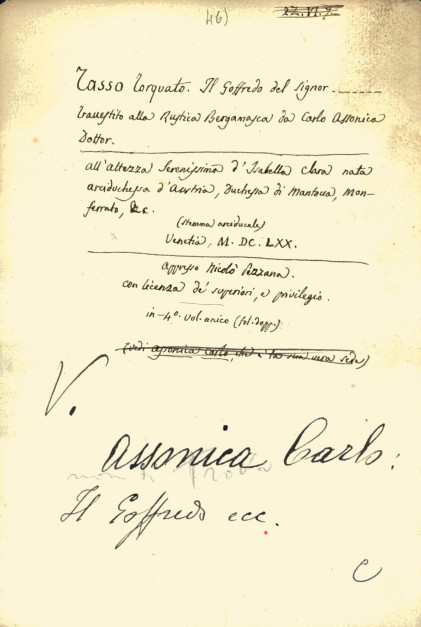 46)
22.VI.9
Tasso Torquato. Il Goffredo del Signor
travestito alla Rustica Bergamasca da Carlo Assonica
Dottor.
all'altezza Serenissima d'Isabella Clara nata
arciduchessa d'Austria, Duchessa di Mantova, Mon-
ferrato, &c.
(stemma arciducale)
Venetia, M. DC. LXX.
appresso Nicolò Pezzana.
con licenza de' superiori, e privilegio.
in-4º. vol. unico (fol. dopp.)
(vedi Assonica Carlo, che è la sua vera sede)
V.
Assonica Carlo:
non si trova
Il Goffredo ecc.
C